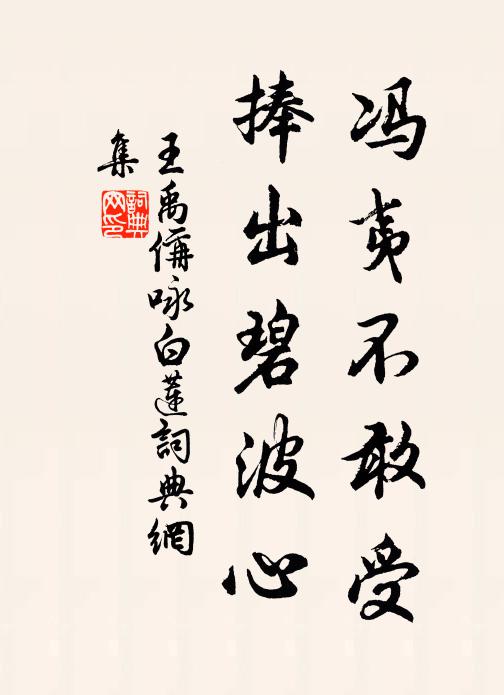 冯夷不敢受
捧出碧波心
王禹偁咏白蓮詞典網
集
詞典
网印